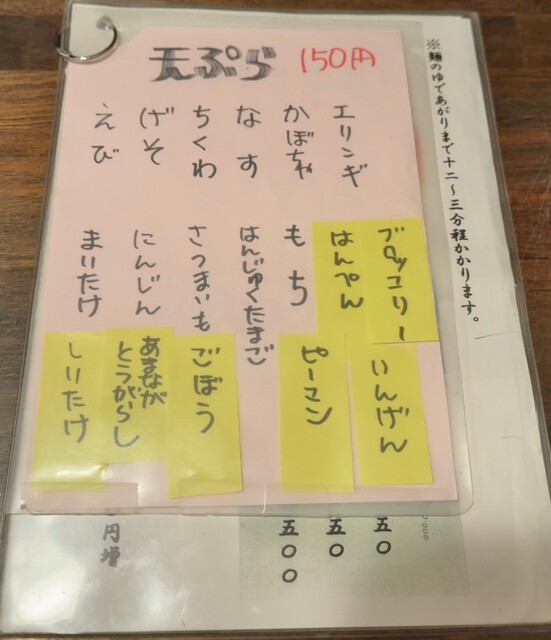 天ぷら 150円
※麺のゆであがりまで十二〜三分程かかります。
エリンギ
かぼちゃ
なす
ちくわ
げそ
えび
ブロッコリー
はんぺん
もち
はんじゅくたまご
さつまいも
にんじん
まいたけ
いんげん
ピーマン
ごぼう
あまなが
とうがらし
しいたけ
五〇
五〇
五〇〇
円増